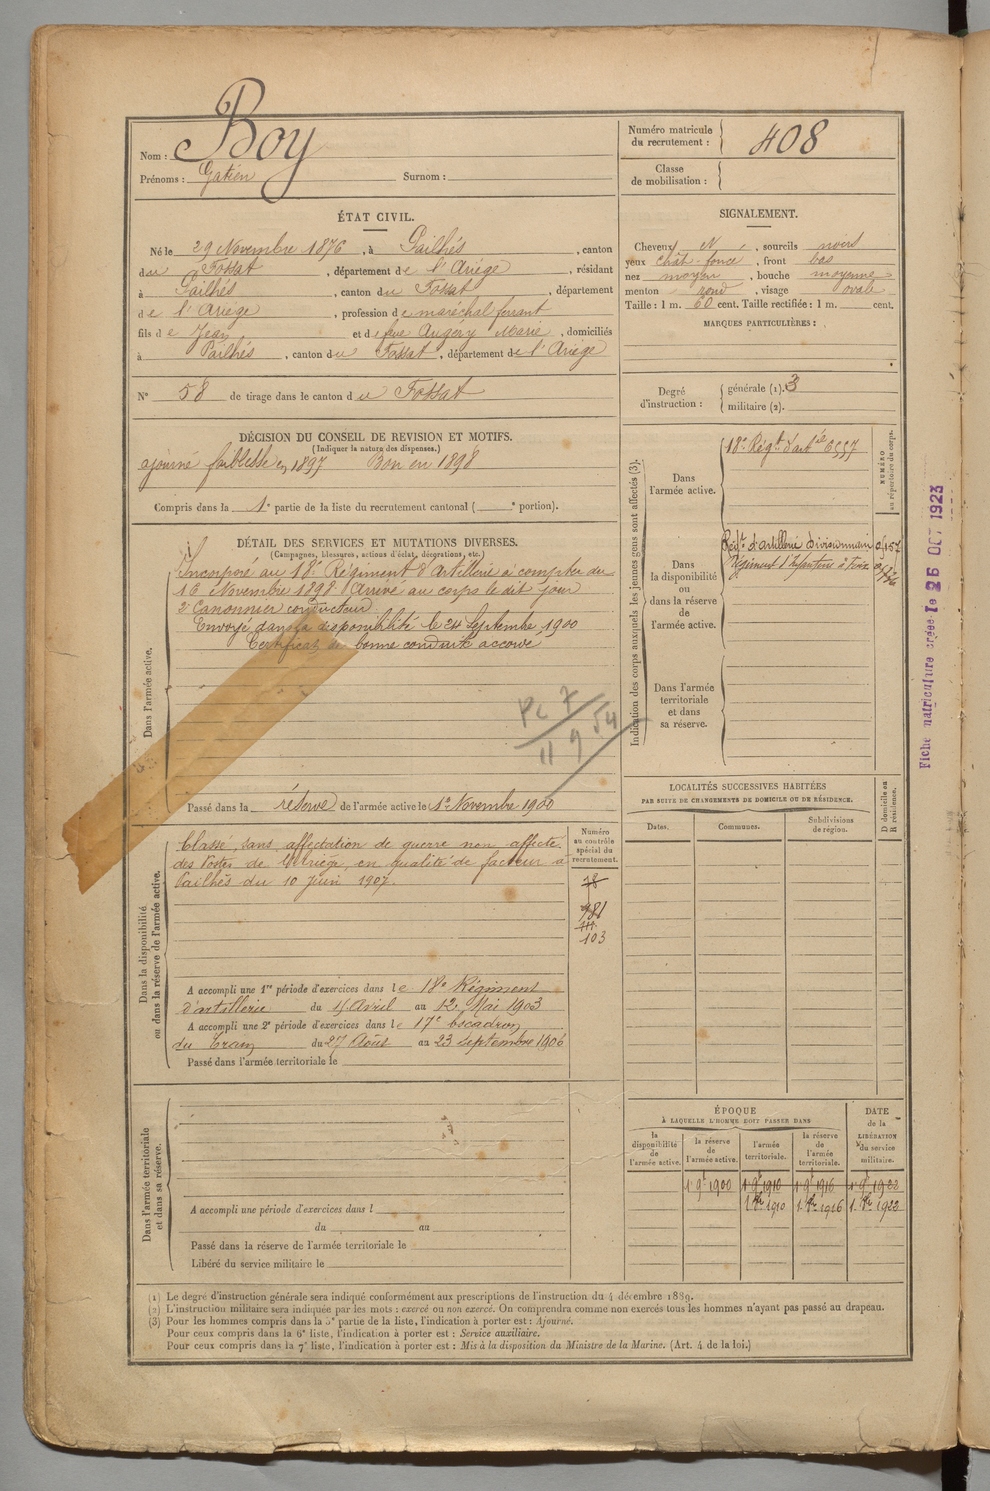 Nom : Boy
Prénoms : Gatien Surnom :
Numéro matricule du recrutement : 408
Classe de mobilisation :
ÉTAT CIVIL.
Né le 29 Novembre 1876, à Pailhés, canton
du Fossat, département de l'Ariège, résidant
à Pailhés, canton du Fossat, département
de l'Ariège, profession de maréchal ferrant
fils de Jean et de feue Augery Marie, domiciliés
à Pailhés, canton du Fossat, département de l'Ariège
N° 58 de tirage dans le canton du Fossat
SIGNALEMENT.
Cheveux N, sourcils noirs
yeux chât. foncé, front bas
nez moyen, bouche moyenne
menton rond, visage ovale
Taille : 1 m. 60 cent. Taille rectifiée : 1 m. cent.
MARQUES PARTICULIÈRES :
Degré d'instruction : générale (1). 3
militaire (2).
DÉCISION DU CONSEIL DE REVISION ET MOTIFS.
(Indiquer la nature des dispenses.)
ajourné faiblesse en 1897 Bon en 1898
Compris dans la 1e partie de la liste du recrutement cantonal ( e portion).
DÉTAIL DES SERVICES ET MUTATIONS DIVERSES.
(Campagnes, blessures, actions d'éclat, décorations, etc.)
Dans l'armée active.
Incorporé au 18e Régiment d'Artillerie à compter du
16 Novembre 1898 Arrivé au corps le dit jour
2e Canonnier conducteur
Envoyé dans la disponibilité le 24 Septembre 1900
Certificat de bonne conduite accordé
Pc 7
11 9 54
Passé dans la réserve de l'armée active le 1er Novembre 1900
Indication des corps auxquels les jeunes gens sont affectés (3).
NUMÉRO au répertoire du corps.
Dans l'armée active.
18e Régt d'artie 6557
Dans la disponibilité ou dans la réserve de l'armée active.
Régt d'artillerie divisionnaire
Régiment d'Infanterie à Foix
Dans l'armée territoriale et dans sa réserve.
Fiche matricule créée le 26 OCT 1923
LOCALITÉS SUCCESSIVES HABITÉES
PAR SUITE DE CHANGEMENTS DE DOMICILE OU DE RÉSIDENCE.
D domicile ou R résidence.
Dates. Communes. Subdivisions de région.
Dans la disponibilité ou dans la réserve de l'armée active.
Numéro au contrôle spécial du recrutement.
Classé, sans affectation de guerre non affecté
des Postes de l'Ariège, en qualité de facteur à
Pailhés du 10 Juin 1907.
103
A accompli une 1re période d'exercices dans le 18e Régiment
d'artillerie du 15 Avril au 12 Mai 1903
A accompli une 2e période d'exercices dans le 17e escadron
du Train du 27 Août au 23 septembre 1906
Passé dans l'armée territoriale le
Dans l'armée territoriale et dans sa réserve.
A accompli une période d'exercices dans l
du au
Passé dans la réserve de l'armée territoriale le
Libéré du service militaire le
ÉPOQUE
À LAQUELLE L'HOMME DOIT PASSER DANS
DATE de la LIBÉRATION du service militaire.
la disponibilité de l'armée active. la réserve de l'armée active. l'armée territoriale. la réserve de l'armée territoriale.
1 9e 1900 1 9e 1910 1 9e 1916 1 9e 1922
1 8bre 1910 1. 8bre 1916 1. 8bre 1922
(1) Le degré d'instruction générale sera indiqué conformément aux prescriptions de l'instruction du 4 décembre 1889.
(2) L'instruction militaire sera indiquée par les mots : exercé ou non exercé. On comprendra comme non exercés tous les hommes n'ayant pas passé au drapeau.
(3) Pour les hommes compris dans la 5e partie de la liste, l'indication à porter est : Ajourné.
Pour ceux compris dans la 6e liste, l'indication à porter est : Service auxiliaire.
Pour ceux compris dans la 7e liste, l'indication à porter est : Mis à la disposition du Ministre de la Marine. (Art. 4 de la loi.)